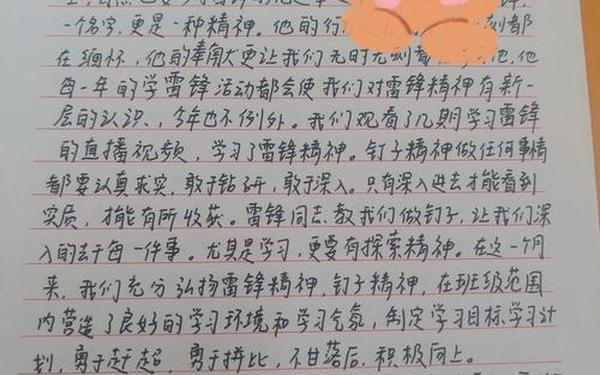 一个名字,更是一种精神。他的行
在缅怀,他的奉献更让我们无时无刻都他,他
每一年的学雷锋活动都会使我们对雷锋精神有新一
层的认识、今年也不例外。我们观看了几期学习雷锋
的直播视频,学习了雷锋精神。钉子精神做任何事情
都要认真求实,敢于钻研,敢于深入。只有深入进去才能看到
实质,才能有所收获。雷锋同志、教我们做钉子,让我们深
入的去干每一件事。尤其是学习,更要有探索精神。在这一个月
来,我们充分弘扬雷锋精神,钉子精神,在班级范围
内营造了良好的学习环境和学习气氛,制定学习目标学习计
划,勇于赶超,勇于拼比,不甘落后,积极向上。